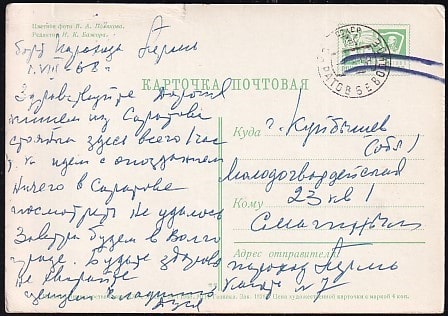 Цветное фото В. А. Полякова.
Редактор Н. К. Бажора.
борт парохода Пермь
1. VIII 68 г
КАРТОЧКА ПОЧТОВАЯ
Здравствуйте дорогие
пишем из Саратова
стоянка здесь всего 1 час
т. к. идем с опозданием
ничего в Саратове
посмотреть не удалось
Завтра будем в Волго
граде. Будьте здоровы
не скучайте
целуем Владимир
Дуся
САРАТОВ
Куда
г. Куйбышев
Обл /
Молодогвардейская
23 кв 1
Кому
Смагиным
Адрес отправителя:
пароход Пермь
каюта № 7
Цена художественной карточки с маркой 4 коп.